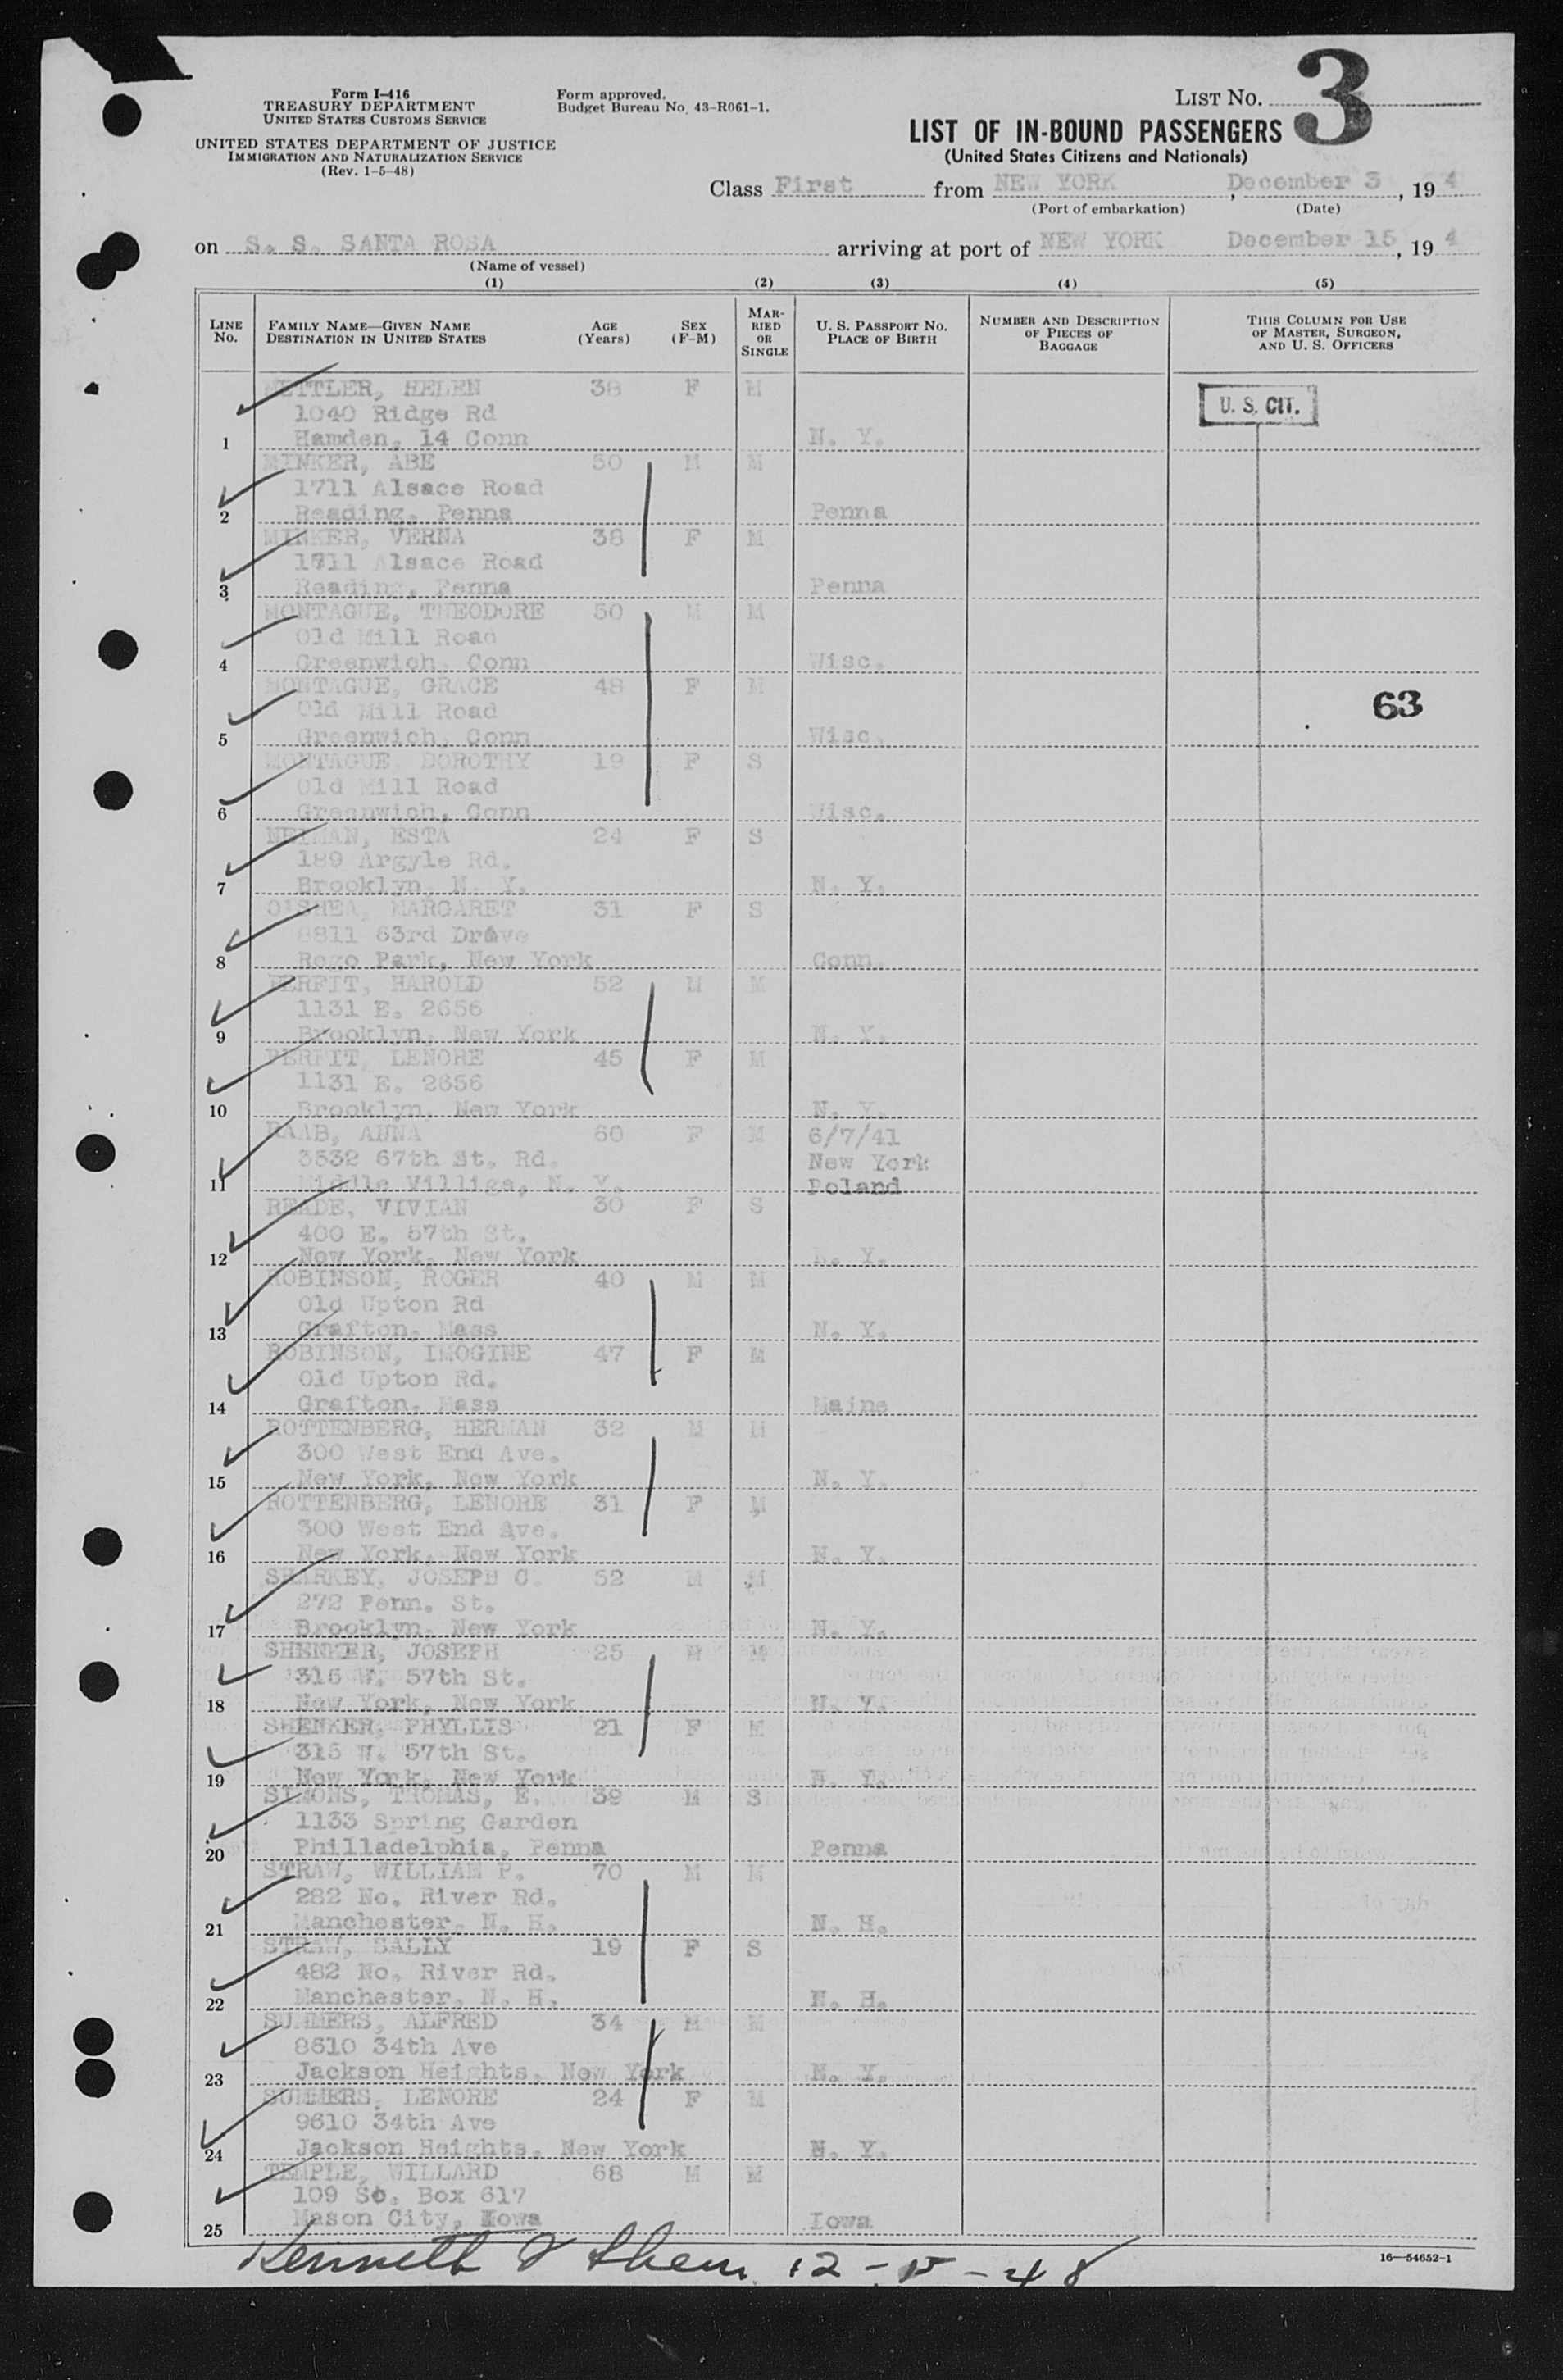 Form I-416
TREASURY DEPARTMENT
UNITED STATES CUSTOMS SERVICE
UNITED STATES DEPARTMENT OF JUSTICE
IMMIGRATION AND NATURALIZATION SERVICE
(Rev. 1-5-48)
Form approved.
Budget Bureau No. 43-R061-1.
LIST NO. 3
LIST OF IN-BOUND PASSENGERS
(United States Citizens and Nationals)
Class First from NEW YORK, December 3, 194
(Port of embarkation) (Date)
on S. S. SANTA ROSA arriving at port of NEW YORK December 15, 194
(Name of vessel)
(1) (2) (3) (4) (5)
LINE NO.
FAMILY NAME—GIVEN NAME
DESTINATION IN UNITED STATES
AGE (Years)
SEX (F-M)
MARRIED OR SINGLE
U. S. PASSPORT NO.
PLACE OF BIRTH
NUMBER AND DESCRIPTION OF PIECES OF BAGGAGE
THIS COLUMN FOR USE OF MASTER, SURGEON, AND U. S. OFFICERS
METTLER, HELEN 38 F M
1040 Ridge Rd
1 Hamden, 14 Conn N. Y.
U. S. CIT.
MINKER, ABE 50 M M
1711 Alsace Road
2 Reading, Penna Penna
MINKER, VERNA 38 F M
1711 Alsace Road
3 Reading, Penna Penna
MONTAGUE, THEODORE 50 M M
Old Mill Road
4 Greenwich, Conn Wisc.
MONTAGUE, GRACE 48 F M
Old Mill Road
63
5 Greenwich, Conn Wisc.
MONTAGUE DOROTHY 19 F S
Old Mill Road
6 Greenwich, Conn Wisc.
NEIMAN, ESTA 24 F S
189 Argyle Rd.
7 Brooklyn, N. Y. N. Y.
O'SHEA, MARGARET 31 F S
8811 63rd Drive
8 Rego Park, New York Conn.
PERFIT, HAROLD 52 M M
1131 E. 2656
9 Brooklyn, New York N. Y.
PERFIT, LENORE 45 F M
1131 E. 2656
10 Brooklyn, New York N. Y.
RAAB, ANNA 60 F M 6/7/41
3532 67th St. Rd. New York
11 Middle Williga, N. Y. Poland
READE, VIVIAN 30 F S
400 E. 57th St.
12 New York, New York N. Y.
ROBINSON, ROGER 40 M M
Old Upton Rd
13 Grafton, Mass N. Y.
ROBINSON, IMOGINE 47 F M
Old Upton Rd.
14 Grafton, Mass Maine
ROTTENBERG, HERMAN 32 M M
300 West End Ave.
15 New York, New York N. Y.
ROTTENBERG, LENORE 31 F M
300 West End Ave.
16 New York, New York N. Y.
SHARKEY, JOSEPH C. 52 M M
272 Penn. St.
17 Brooklyn, New York N. Y.
SHENKER, JOSEPH 25 M M
315 W. 57th St.
18 New York, New York N. Y.
SHENKER, PHYLLIS 21 F M
315 W. 57th St.
19 New York, New York N. Y.
SIMONS, THOMAS, E. 39 M S
1133 Spring Garden
20 Philladelphia, Penna Penna
STRAW, WILLIAM P. 70 M M
282 No. River Rd.
21 Manchester, N. H. N. H.
STRAW, SALLY 19 F S
482 No. River Rd.
22 Manchester, N. H. N. H.
SUMMERS, ALFRED 34 M M
8610 34th Ave
23 Jackson Heights, New York N. Y.
SUMMERS, LENORE 24 F M
9610 34th Ave
24 Jackson Heights, New York N. Y.
TEMPLE, WILLARD 68 M M
109 So. Box 617
25 Mason City, Iowa Iowa
Kenneth 12-15-48
16—54652-1